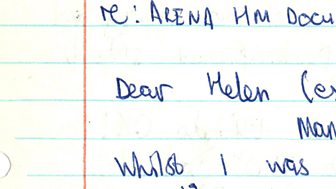 re: ARENA HM DOCU
Dear Helen (ex
Man
Whilst I was